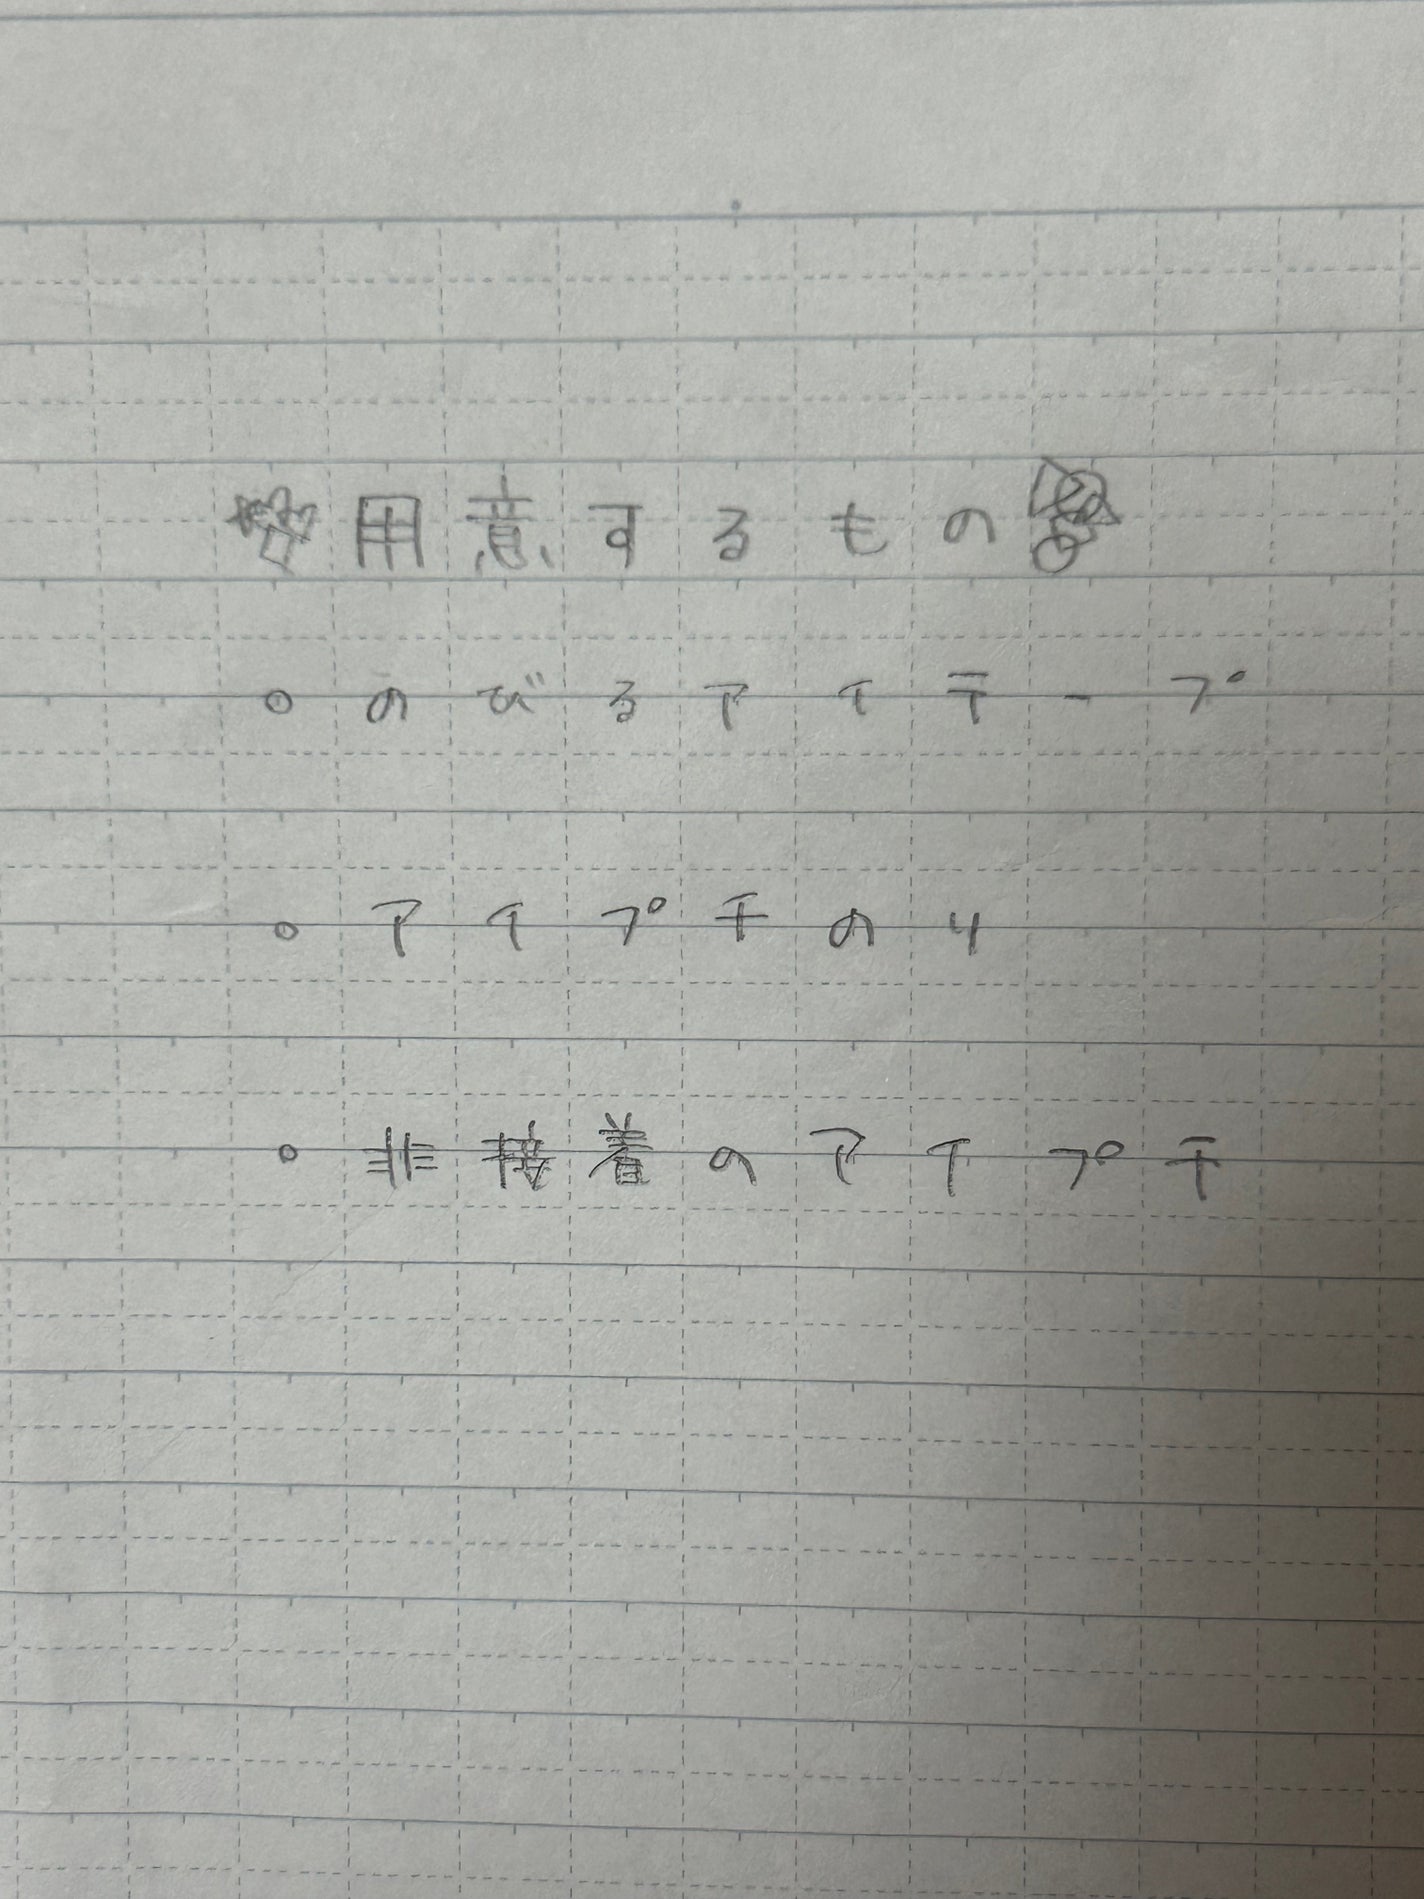 用意するもの
○のびるアイテープ
○アイプチのり
○非接着のアイプチ